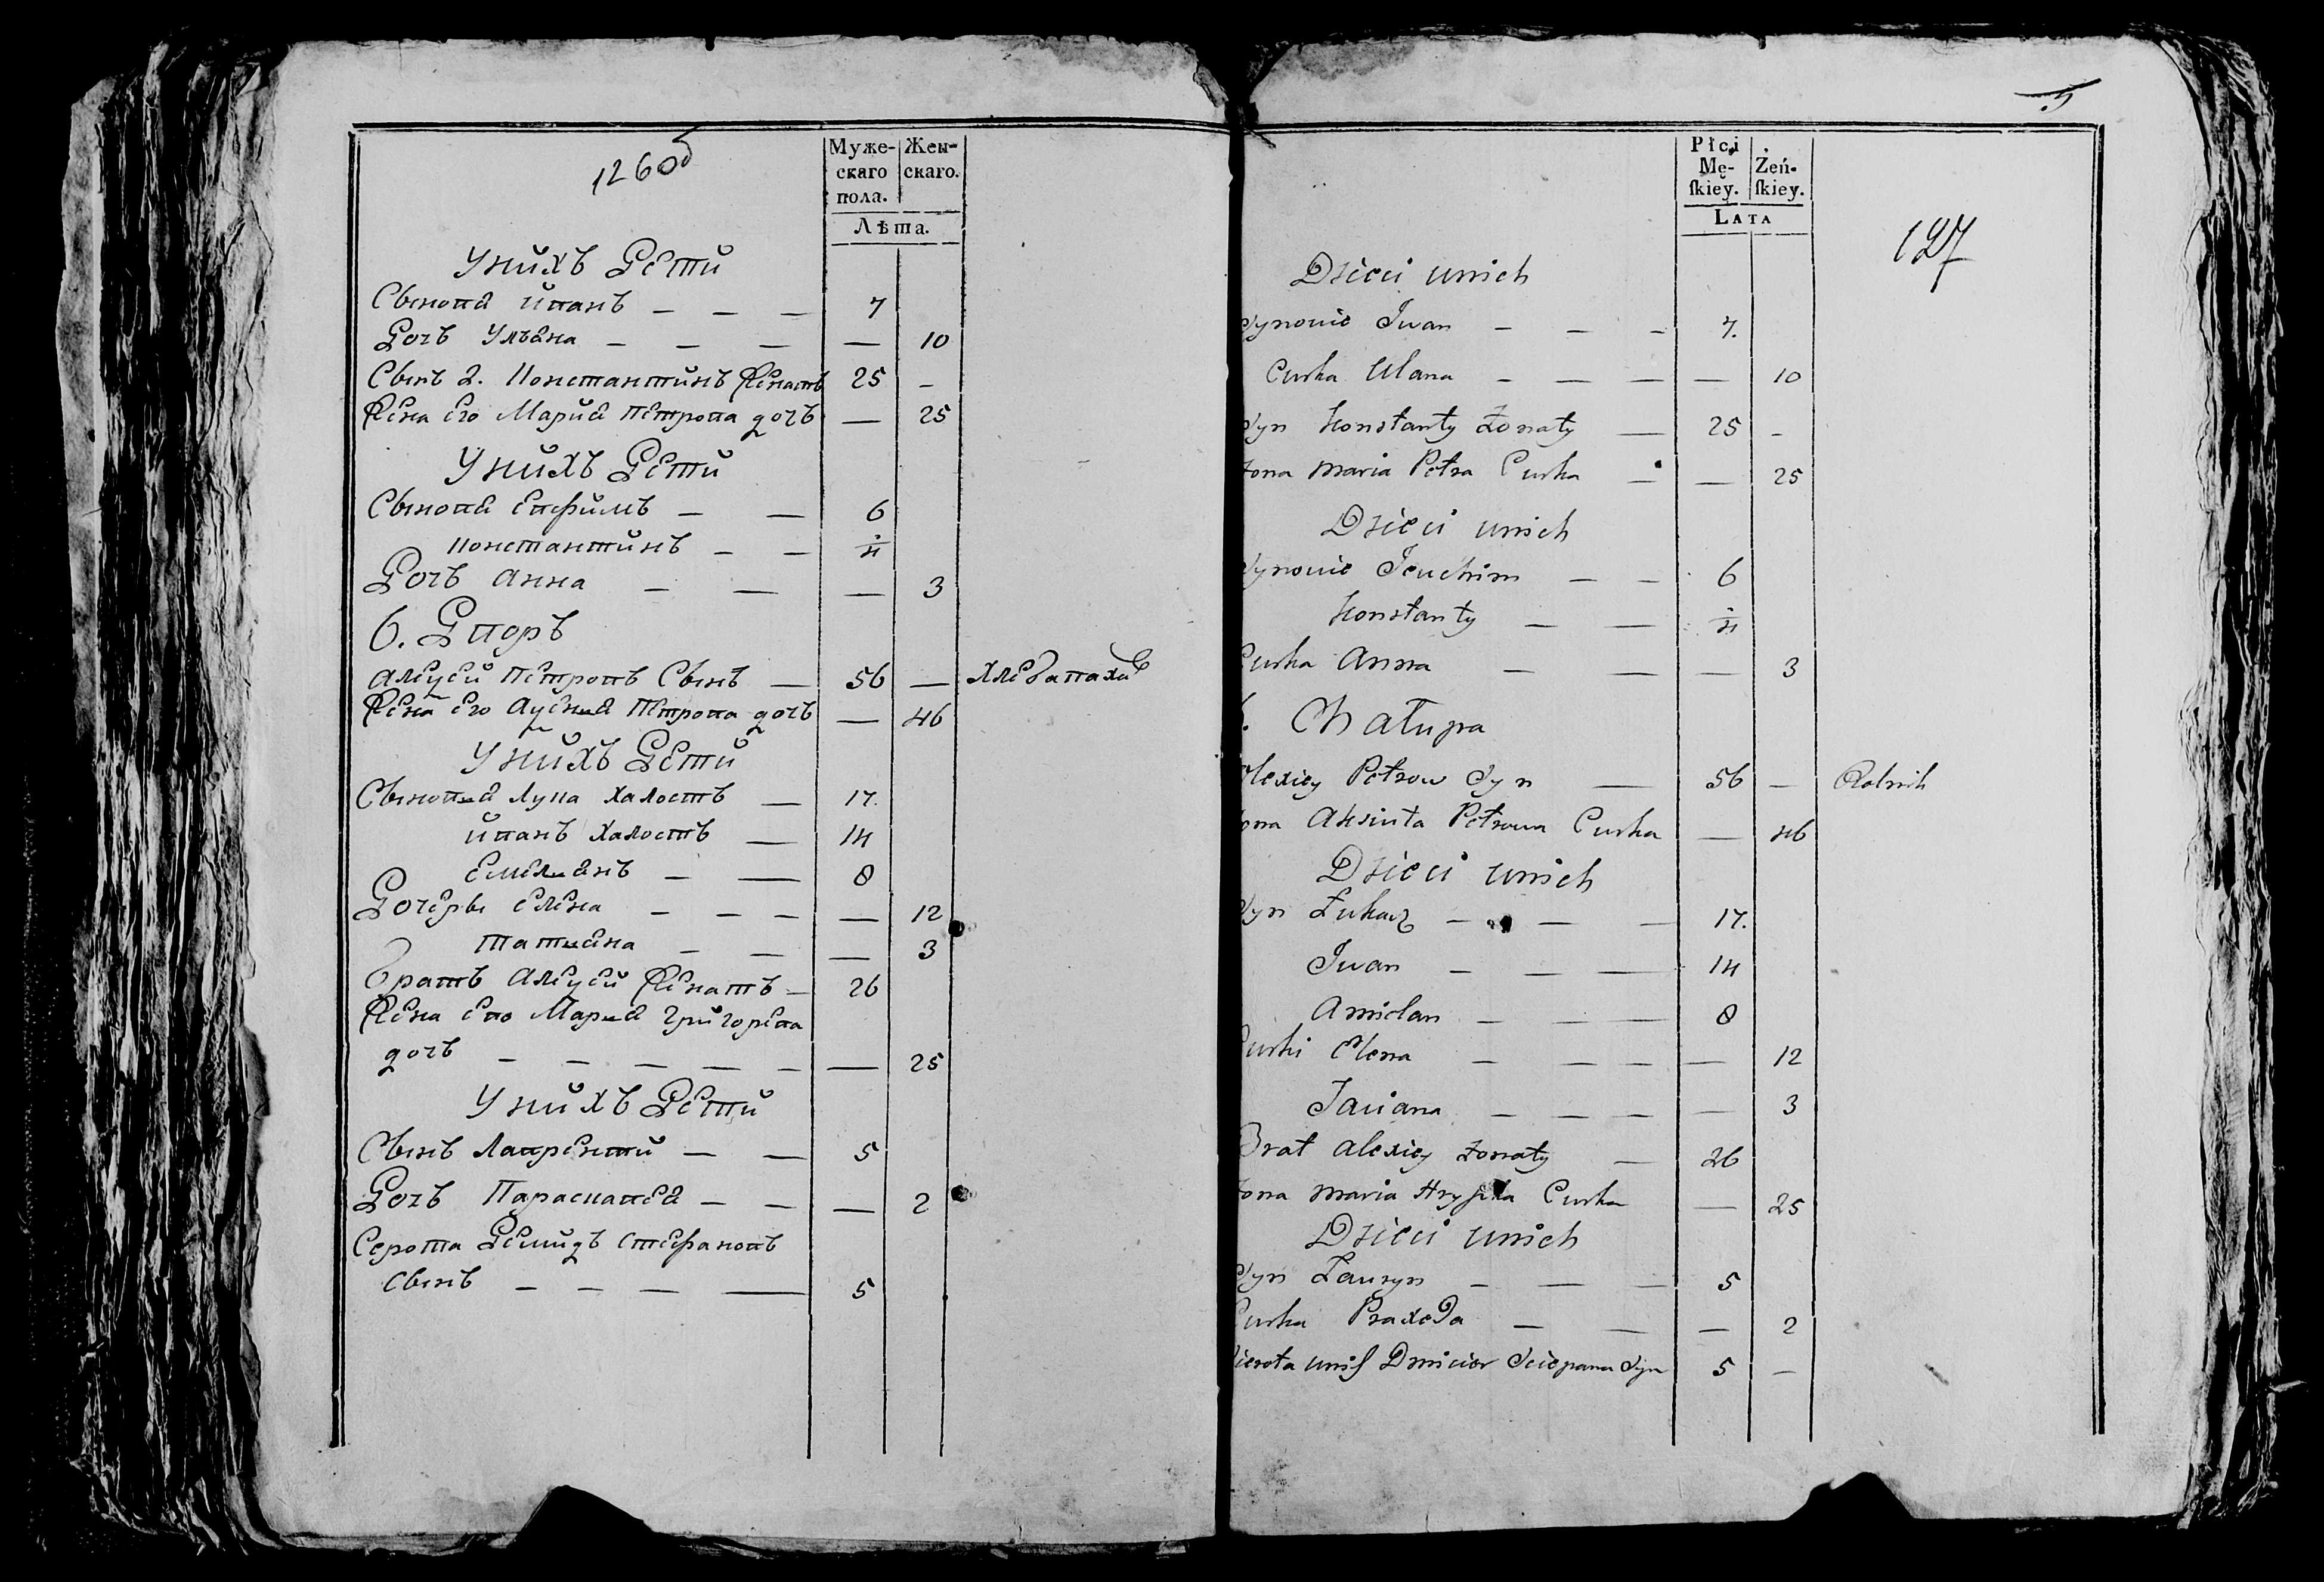 126об
Муже-
скаго
пола.
Жен-
скаго.
Лѣта.
У нихъ Дети
Сынове Иванъ — — — 7
Дочь Ульяна — — — — 10
Сынъ 2. Константинъ Женатъ 25 —
Жена его Мария Петрова дочь — 25
У нихъ Дети
Сынове Евфимъ — — 6
Константинъ — —
Дочь Анна — — — 3
6. Дворъ
Алексей Петровъ Сынъ — 56 — Хлебапахе
Жена его Ксения Петрова дочь — 46
У нихъ Дети
Сыновья Лука Халостъ — 17.
Иванъ Халостъ — 14
Емельянъ — — 8
Дочеры Елена — — — — 12
Татияна — — — 3
Братъ Алексей Женатъ — 26
Жена его Мария Григорева
дочь — — — — — — 25
У нихъ Дети
Сынъ Лаврентий — — 5
Дочь Параскавея — — — 2
Серота Демидъ Стефановъ
Сынъ — — — — 5
5
127
Płci
Mę-
ſkiey.
Żeń-
ſkiey.
Lata
Dzieci unich
Synowie Iwan — — — 7.
Curka Ulana — — — — 10
Syn Konstanty Żonaty — 25 —
Żona Maria Petra Curka — — 25
Dzieci unich
Synowie Jeuchim — — 6
Konstanty — —
Curka Anna — — — 3
6. Chałupa
Alexiey Petrow Syn — 56 — Rolnik
Żona Aksiuta Petrowa Curka — 46
Dzieci unich
Syn Łukasz — — — 17.
Iwan — — — 14
Amielan — — — 8
Curki Elena — — — — 12
Taciana — — — — 3
Brat Alexiey Żonaty — 26
Żona Maria Hryhra Curka — 25
Dzieci unich
Syn Ławryn — — — 5
Curka Praxeda — — — 2
Sierota unich Dmicier Sciepana Syn 5 —